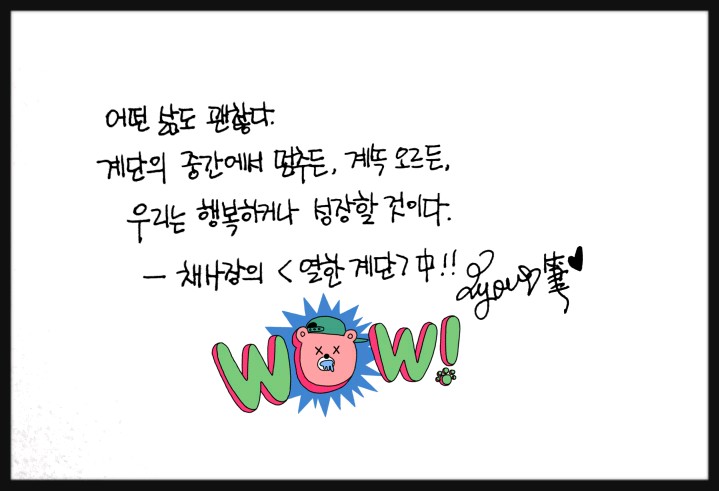 어떤 삶도 괜찮다.
계단의 중간에서 멈추든, 계속 오르든,
우리는 행복하거나 성장할 것이다.
— 채사장의 <열한 계단> 中!!
WOW!